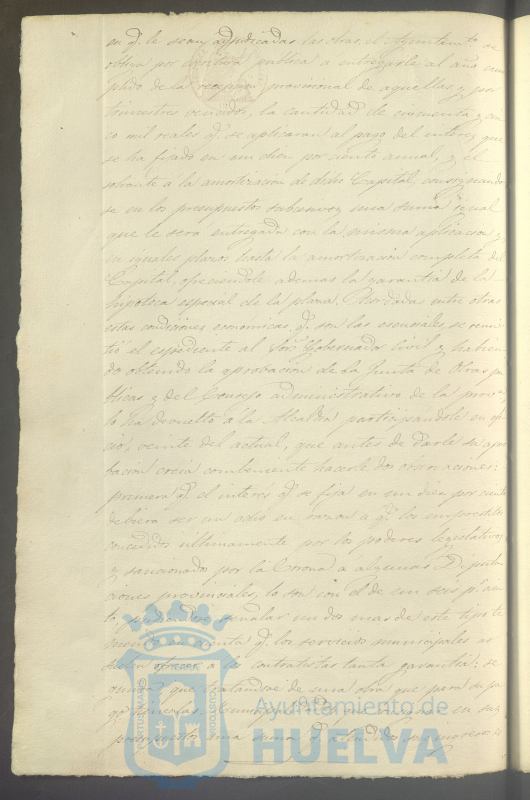 en q.e le sean adjudicadas las obras, el Ayuntam.to se
obliga por escritura publica a entregarle al año cum
plido de la recepcion provisional de aquellas y por
trimestres vencidos, la cantidad de cincuenta y cin
co mil reales q.e se aplicaran al pago del interes que
se ha fijado en un diez por ciento anual, y el
sobrante á la amortizacion de dicho Capital, consignando
se en los presupuestos subcesivos una suma igual
que le sera entregada con la misma aplicacion y
en iguales plazos hasta la amortizacion completa del
Capital, ofreciendole ademas la garantia de la
hipoteca especial de la plaza. Acordadas entre otras
estas condiciones economicas, q.e son las esenciales, se remi
tió el espediente al Sor. Gobernador Civil y habien
do obtenido la aprobacion de la Junta de Obras pu
blicas y del Consejo administrativo de la prov.a
lo ha devuelto á la Alcaldia participandole en ofi
cio, veinte del actual, que antes de darle su apro
bacion creia combeniente hacerle dos observaciones:
primera q.e el interes q.e se fija en un diez por ciento
debiera ser un ocho en razon a q.e los emprestitos
concedidos ultimamente por los poderes legislativos,
y sancionados por la Corona a algunas Diputa
ciones provinciales, lo son con el de un seis p.r cien
to, pudiendose señalar un dos mas de este tipo te
niendo en cuenta q.e los servicios municipales no
suelen ofrecer a los contratistas tanta garantia; se
gunda que tratandose de una obra que para su pa
go
presupuestos una suma
PORTUS MARIS
ET TERRE
CUSTODIA
Ayuntamiento de
HUELVA